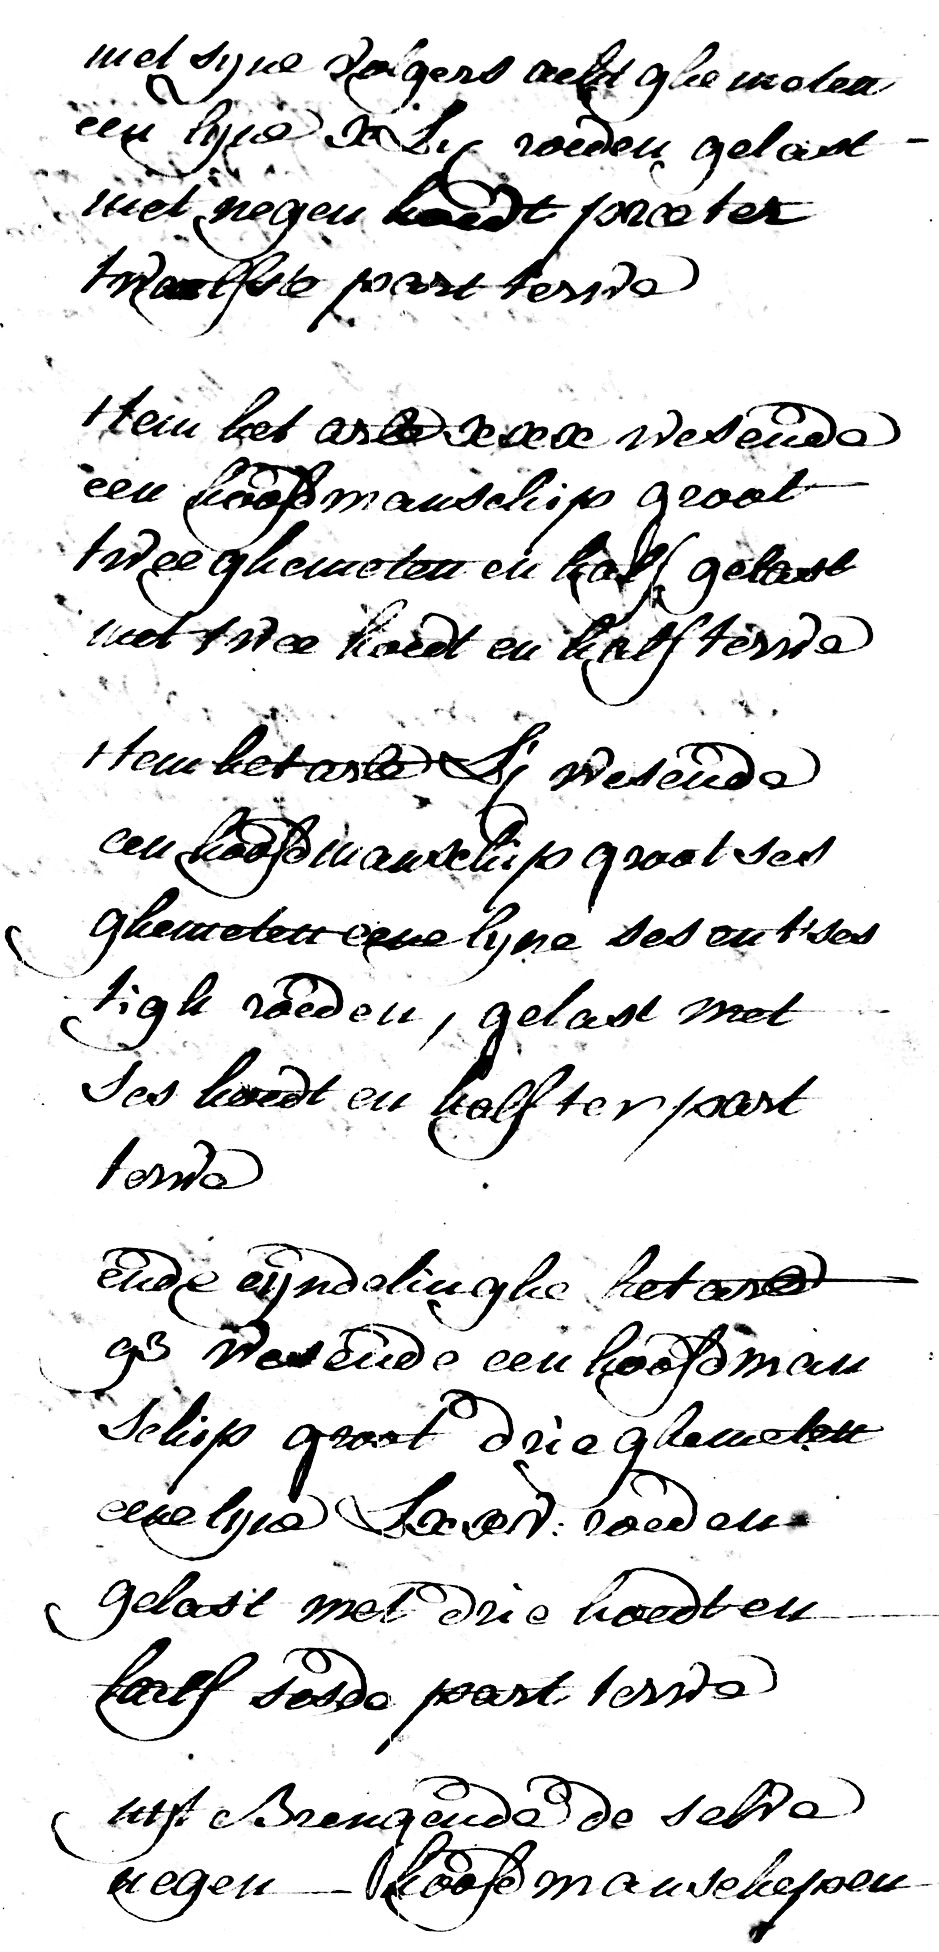 met syne volgers acht ghemeten
een lyne x Ly roeden gelast -
met negen hoedt præter
twaelfste part terwe
Item het arle xxx wesende
een hoofdmanschip groot
twee ghemeten en half, gelast
met twee hoedt en half terwe
Item het arle Lj wesende
een hoofdmanschip groot ses
ghemeten eene lyne ses ent'ses
tigh roeden, gelast met
ses hoedt en half ter part
terwe
ende eyndelinghe het arle
93 wesende een hoofdman
schip groot drie ghemeten
eene lyne Lxxv: roeden
gelast met drie hoedt en
half sesde part terwe
uyt Brengende de selve
negen hoofdmanschepen